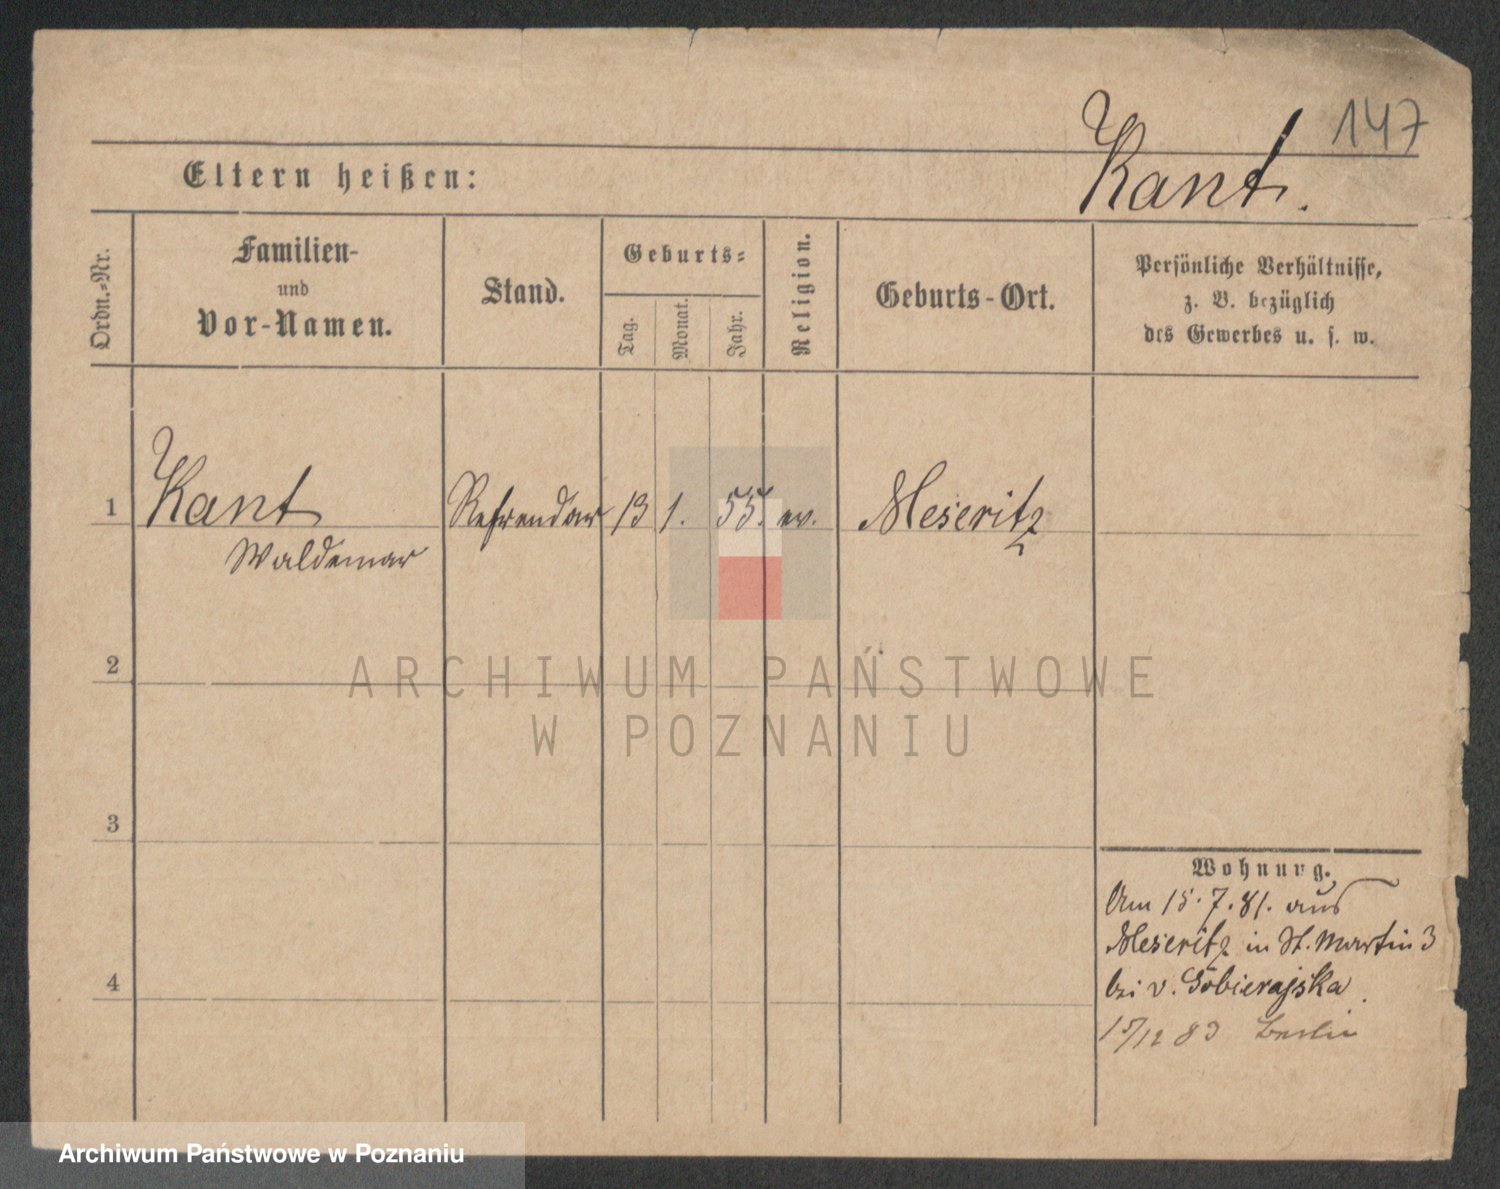 147
Kant.
Eltern heißen:
Ordn.-Nr.
Familien-
und
Vor-Namen.
Stand.
Geburts-
Tag.
Monat.
Jahr.
Religion.
Geburts-Ort.
Persönliche Verhältnisse,
z. B. bezüglich
des Gewerbes u. s. w.
1 Kant Refrendar 13 1. 55. ev. Meseritz
Waldemar
2
ARCHIWUM PAŃSTWOWE
W POZNANIU
3
Wohnung.
Am 15.7.81. aus
Meseritz in St. Martin 3
bei v. Sobierajska
4
15/12 83 Berlin
Archiwum Państwowe w Poznaniu